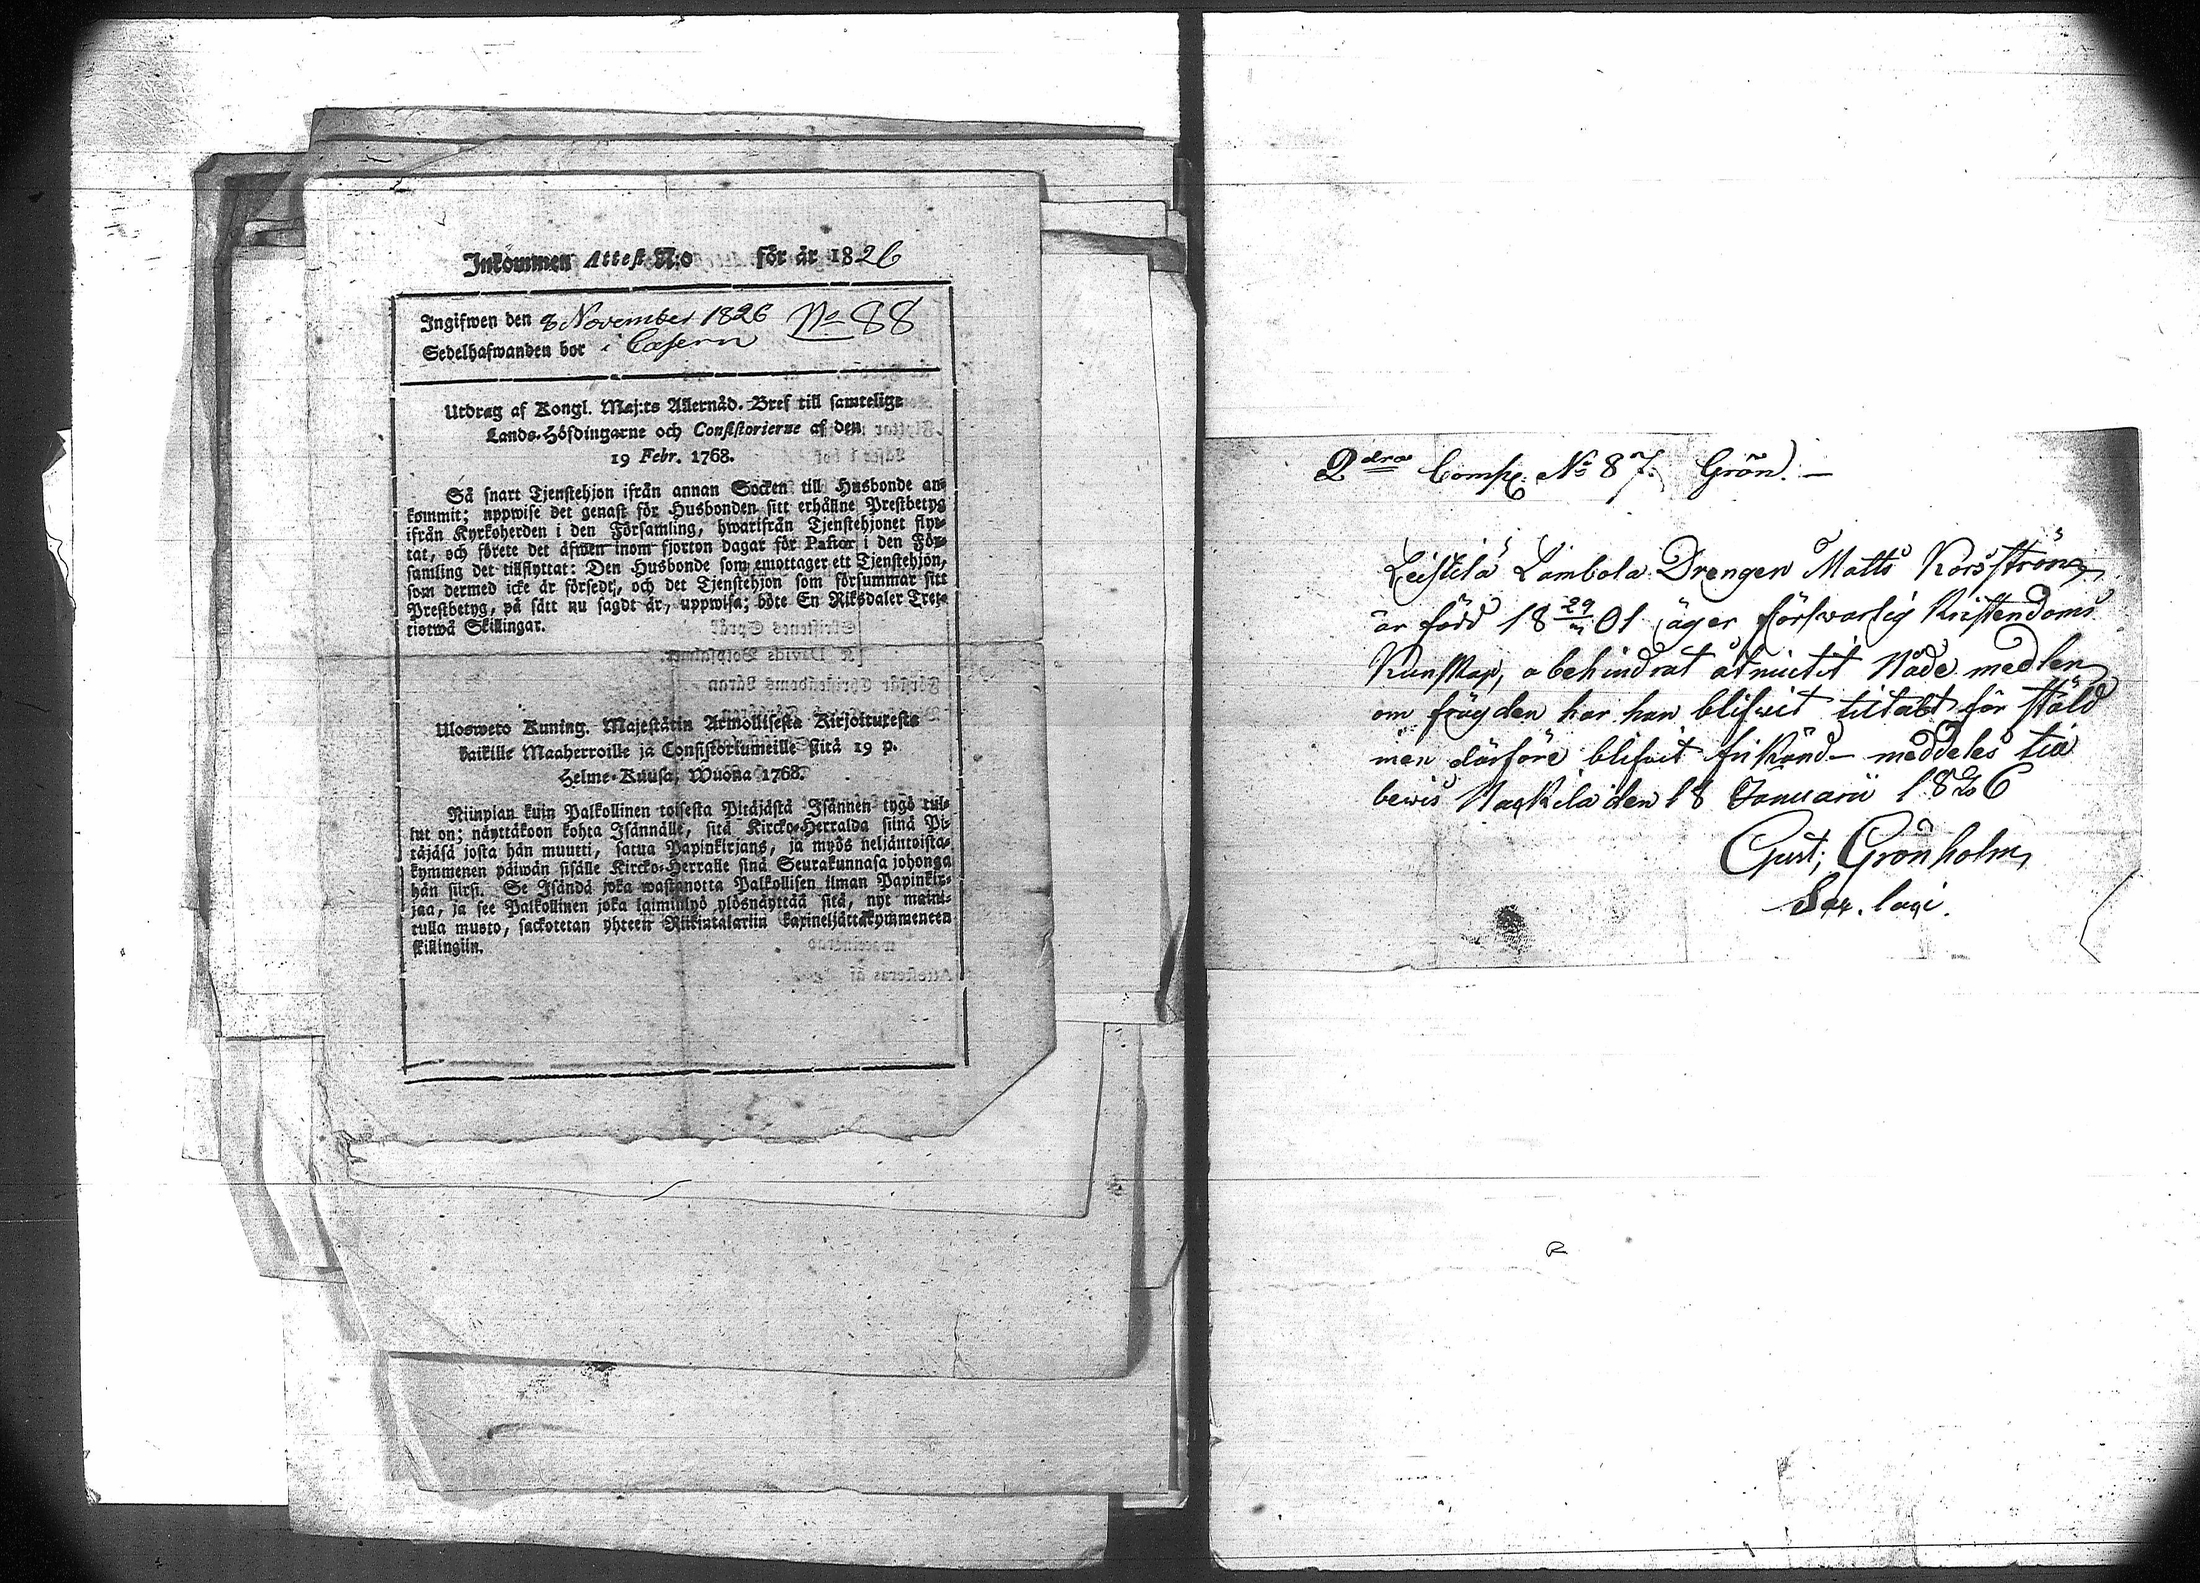 Inkommen Attest N:o för år 1826
Ingifwen den 8 November 1826 No 88
Sedelhafwanden bor i Casern
Utdrag af Kongl. Maj:ts Allernåd. Bref till samtelige
Lands-Höfdingarne och Consistorierne af den
19 Febr. 1768.
Så snart Tjenstehjon ifrån annan Socken till Husbonde an-
kommit; uppwise det genast för Husbonden sitt erhållne Prestbetyg
ifrån Kyrkoherden i den Församling, hwarifrån Tjenstehjonet flyt-
tat, och förete det äfwen inom fjorton dagar för Pastor i den För-
samling det tillflyttat: Den Husbonde som emottager ett Tjenstehjon,
som dermed icke är försedt, och det Tjenstehjon som försummar sitt
Prestbetyg, på sätt nu sagdt är, uppwisa; böte En Riksdaler Tret-
tiotwå Skillingar.
Ulosweto Kuning. Majestätin Armollisesta Kirjoituxesta
kaikille Maaherroille ja Consistoriumeille siitä 19 p.
Helme-Kuusa, Wuona 1768.
Niinpian kuin Palkollinen toisesta Pitäjästä Isännen tygö tul-
lut on; näyttäkoon kohta Isännälle, sitä Kircko-Herralda siinä Pi-
täjäsä josta hän muutti, satua Papinkirjans, ja myös neljäntoista-
kymmenen päiwän sisälle Kircko-Herralle siinä Seurakunnasa johonga
hän siirsi. Se Isändä joka wastanotta Palkollisen ilman Papinkir-
jaa, ja see Palkollinen joka laiminlyö ylösnäyttää sitä, nyt maini-
tulla muoto, sackotetan yhteen Riikintalariin kaxineljättäkymmeneen
skillingiin.
2dra Comp. No 87. Grön.
Leistilä Lambola Drengen Matts Korsström
är född 18 29/ 01 äger försvarlig Kristendoms
Kunskap, obehindrat åtniutit Nåde medlen
om frägden har han blifwit tiltalt för stöld
men därföre blifwit frikänd – meddeles till
bewis Nackila den 18 Januarii 1826
Gust; Grönholm
Sac.